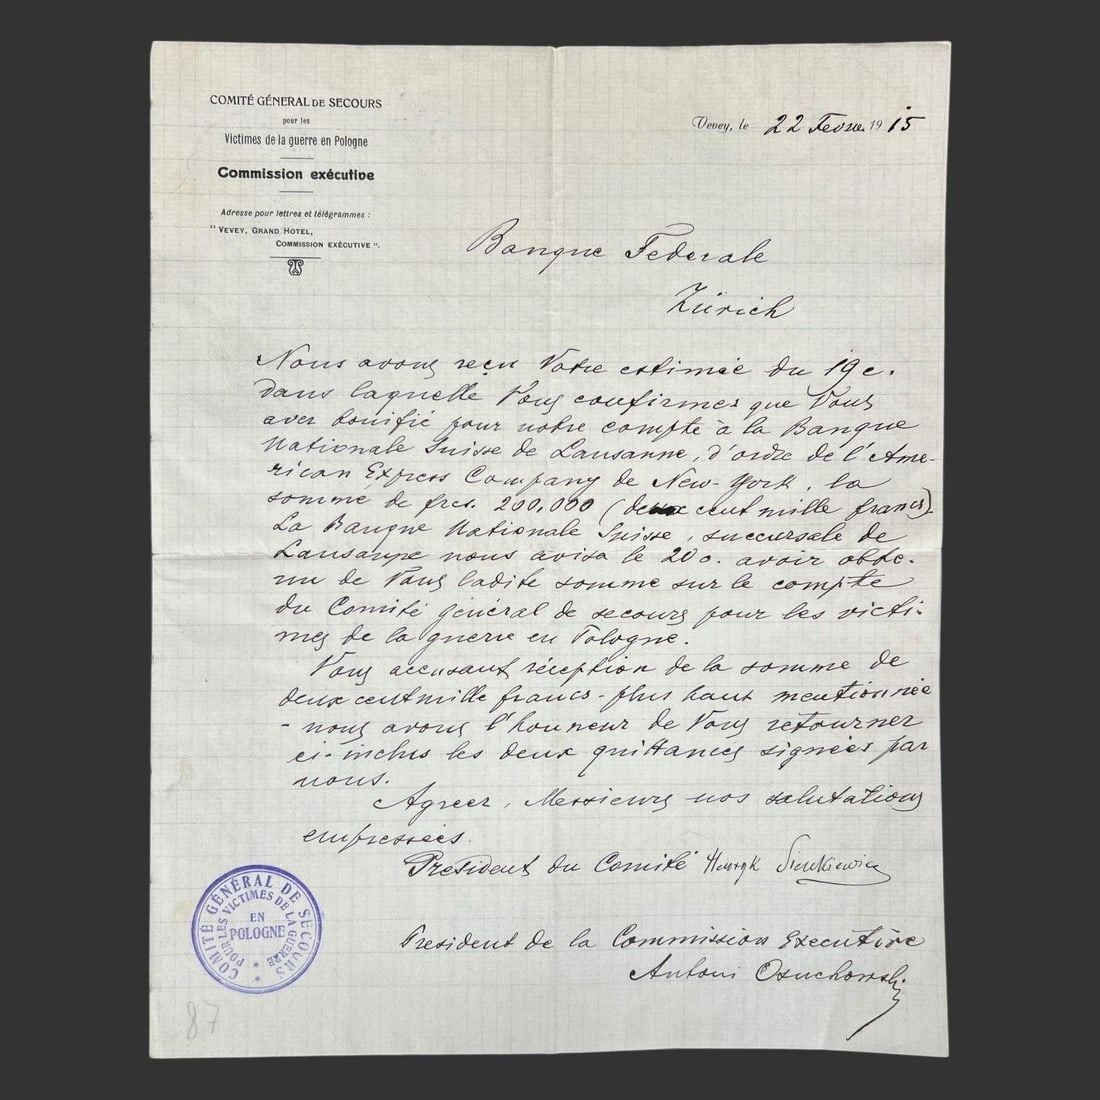 COMITÉ GÉNERAL DE SECOURS
pour les
Victimes de la guerre en Pologne
Commission exécutive
Adresse pour lettres et télégrammes :
" VEVEY, GRAND HOTEL,
COMMISSION EXÉCUTIVE ".
Vevey, le 22 Fevr. 1915
Banque Federale
Zürich
Nous avons reçu Votre estimée du 19 c.
dans laquelle Vous confirmez que Vous
avez bonifié pour notre compte à la Banque
Nationale Suisse de Lausanne, d'ordre de l'Ame-
rican Express Company de New-York, la
somme de frcs. 200,000 (deux cent mille francs).
La Banque Nationale Suisse, succursale de
Lausanne nous avisa le 20 c. avoir obte-
nu de Vous ladite somme sur le compte
du Comité général de secours pour les victi-
mes de la guerre en Pologne.
Vous accusant réception de la somme de
deux cent mille francs - plus haut mentionnée
- nous avons l'honneur de Vous retourner
ci-inclus les deux quittances signées par
nous.
Agreer, Messieurs nos salutations
empressées.
President du Comité Henryk Sienkiewicz
President de la Commission Executive
Antoni Osuchowski
COMITÉ GÉNÉRAL DE SECOURS
POUR LES VICTIMES DE LA GUERRE
EN
POLOGNE
87